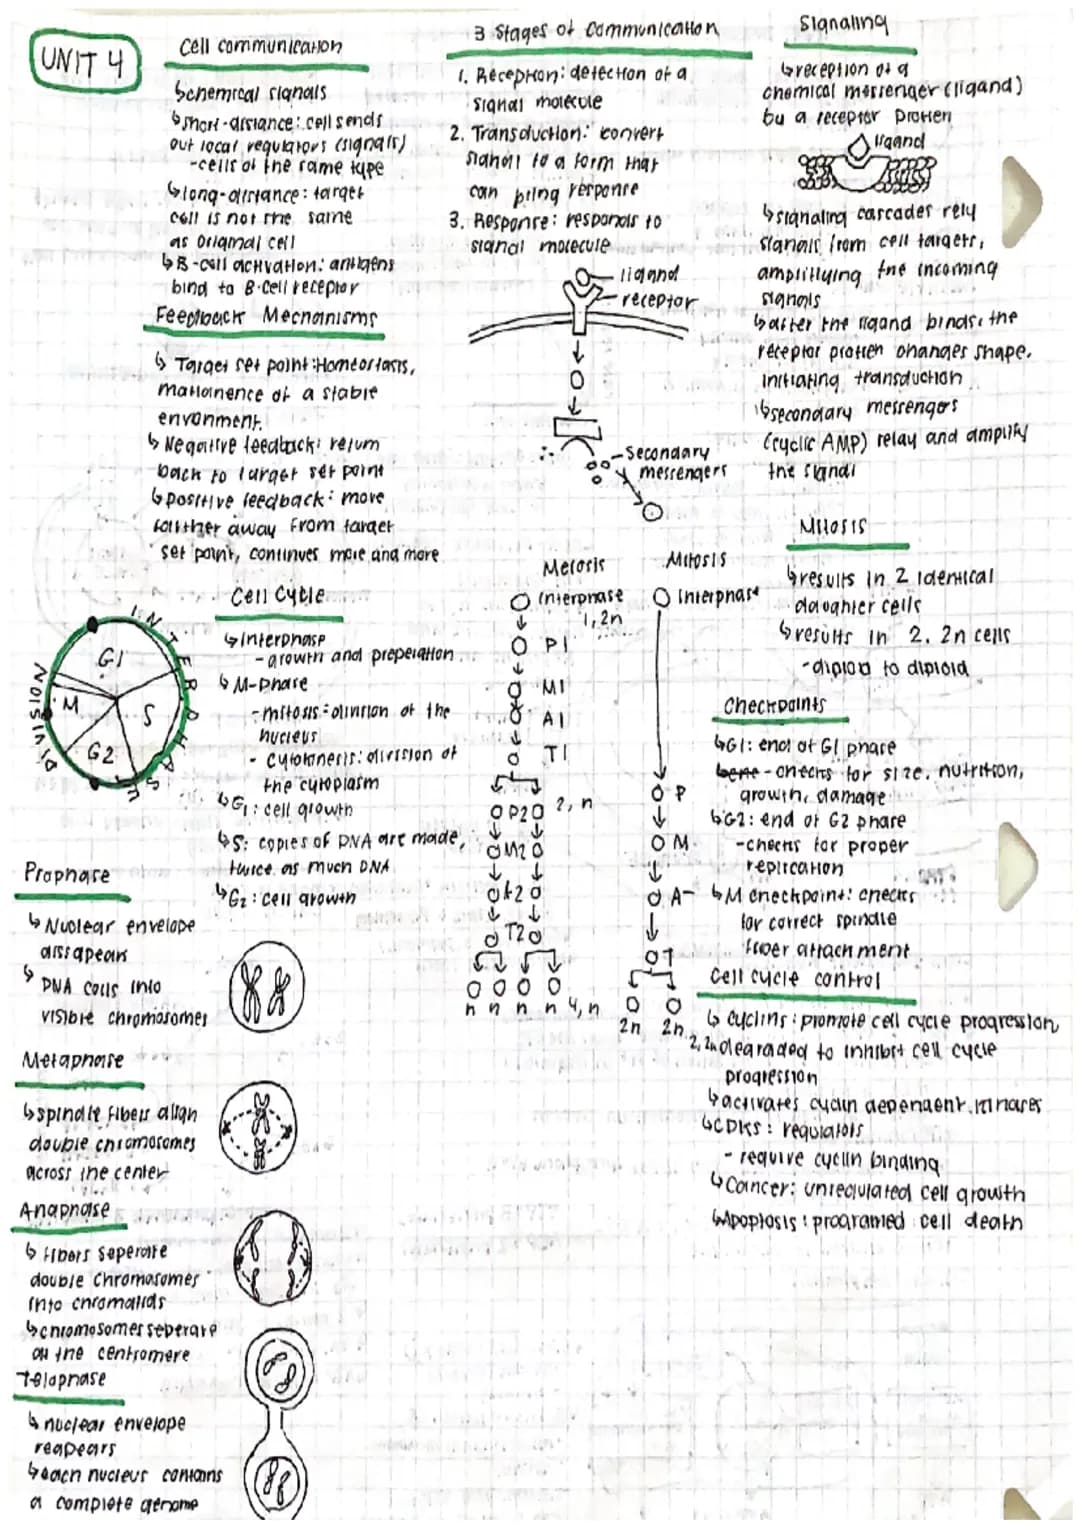 UNIT 4
Cell communication
↳chemical signals
↳short-distance: cell sends
out local regulators (signals)
-cells of the same type
↳long-distance: target
cell is not the same
as original cell
↳B-cell activation: antigens
bind to B-cell receptor
Feedback Mechanisms
↳ Target set point: Homeostasis,
mationence of a stable
envonment.
↳ Negative feedback: return
back to target set point
↳positive feedback: move
farther away from target
set point, continues more and more
3 Stages of Communication
1. Reception: detection of a
signal molecule
2. Transduction: convert
signal to a form that
can bring response
3. Response: responds to
signal molecule
ligand
receptor
Secondary
messengers
Signaling
↳reception of a
chemical messenger (ligand)
by a receptor protien
ligand
↳signaling cascades rely
signals from cell targets,
amplifying the incoming
signals
↳after the ligand binds, the
receptor protien changes shape,
initiating transduction
↳secondary messengers
(cyclic AMP) relay and amplify
the signal
Mitosis
↳results in 2 identical
daughter cells
↳results in 2, 2n cells
-diploid to diploid
Checkpoints
↳G1: end of G1 phase
-checks for size, nutrition,
growth, damage
↳G2: end of G2 phase
-checks for proper
replication
↳M checkpoint: checks
for correct spindle
fiber attachment
Cell cycle control
↳ cyclins: promote cell cycle progression
↳degraded to inhibit cell cycle
progression
↳activates cyclin dependent kinases
↳CDKs: regulators
- require cyclin binding
↳Cancer: unregulated cell growth
↳Apoptosis: programed cell death
Cell Cycle
↳Interphase
-growth and preperation
↳ M-phase
-mitosis: division of the
nucleus
- cytokinesis: division of
the cytoplasm
↳G1: cell growth
↳S: copies of DNA are made,
twice as much DNA
↳G2: cell growth
INTERPHASE
DIVISION
G1
S
G2
M
Meiosis
Interphase
1, 2n
P1
M1
A1
T1
P2
2, n
M2
A2
T2
n n n n 4, n
Mitosis
Interphase
P
M
A
T
2n 2n
2, 2n
Prophase
↳ Nuclear envelope
dissapears
↳ DNA coils into
visible chromosomes
Metaphase
↳spindle fibers align
double chromosomes
across the center
Anaphase
↳ fibers seperate
double chromosomes
into chromatids
↳chromosomes seperate
at the centromere
Telophase
↳ nuclear envelope
reapears
↳each nucleus contains
a complete genome